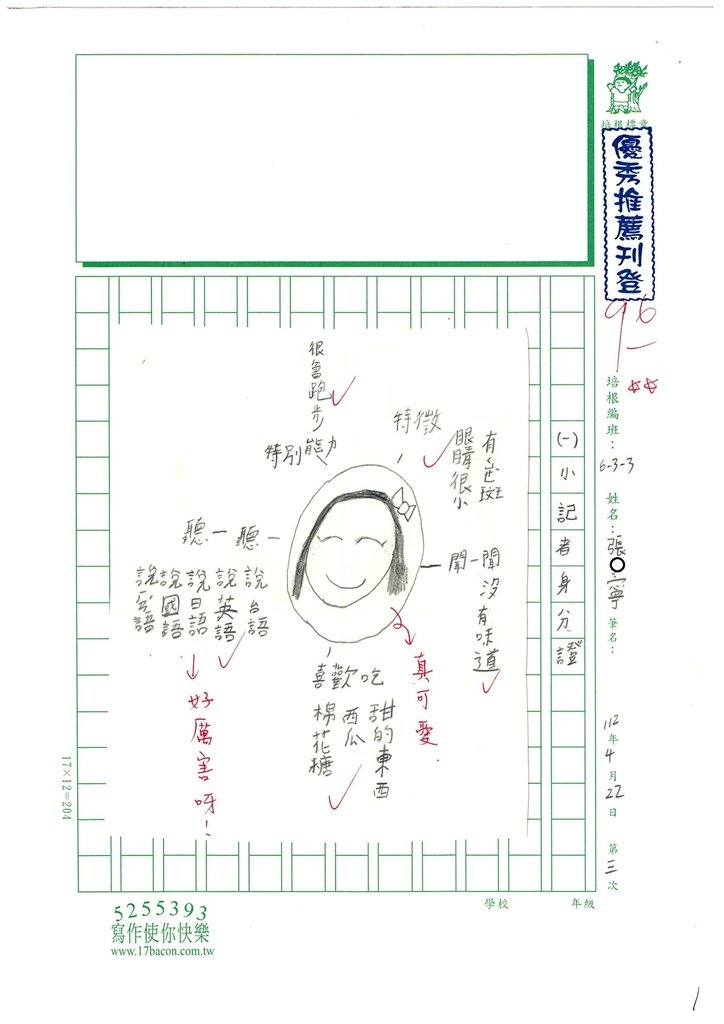 培根標章
優秀推薦刊登
96
培根編班：6-3-3
姓名：張○寧
筆名：
112年4月22日
第三次
(一)小記者身分證
很會跑步
特別能力
特徵
有色斑
眼睛很小
聞一聞
沒有味道
聽一聽
說台語
說英語
說日語
說國語
喜歡吃
甜的東西
西瓜
棉花糖
真可愛
好厲害呀！
17×12=204
學校
年級
5255393
寫作使你快樂
www.17bacon.com.tw
1